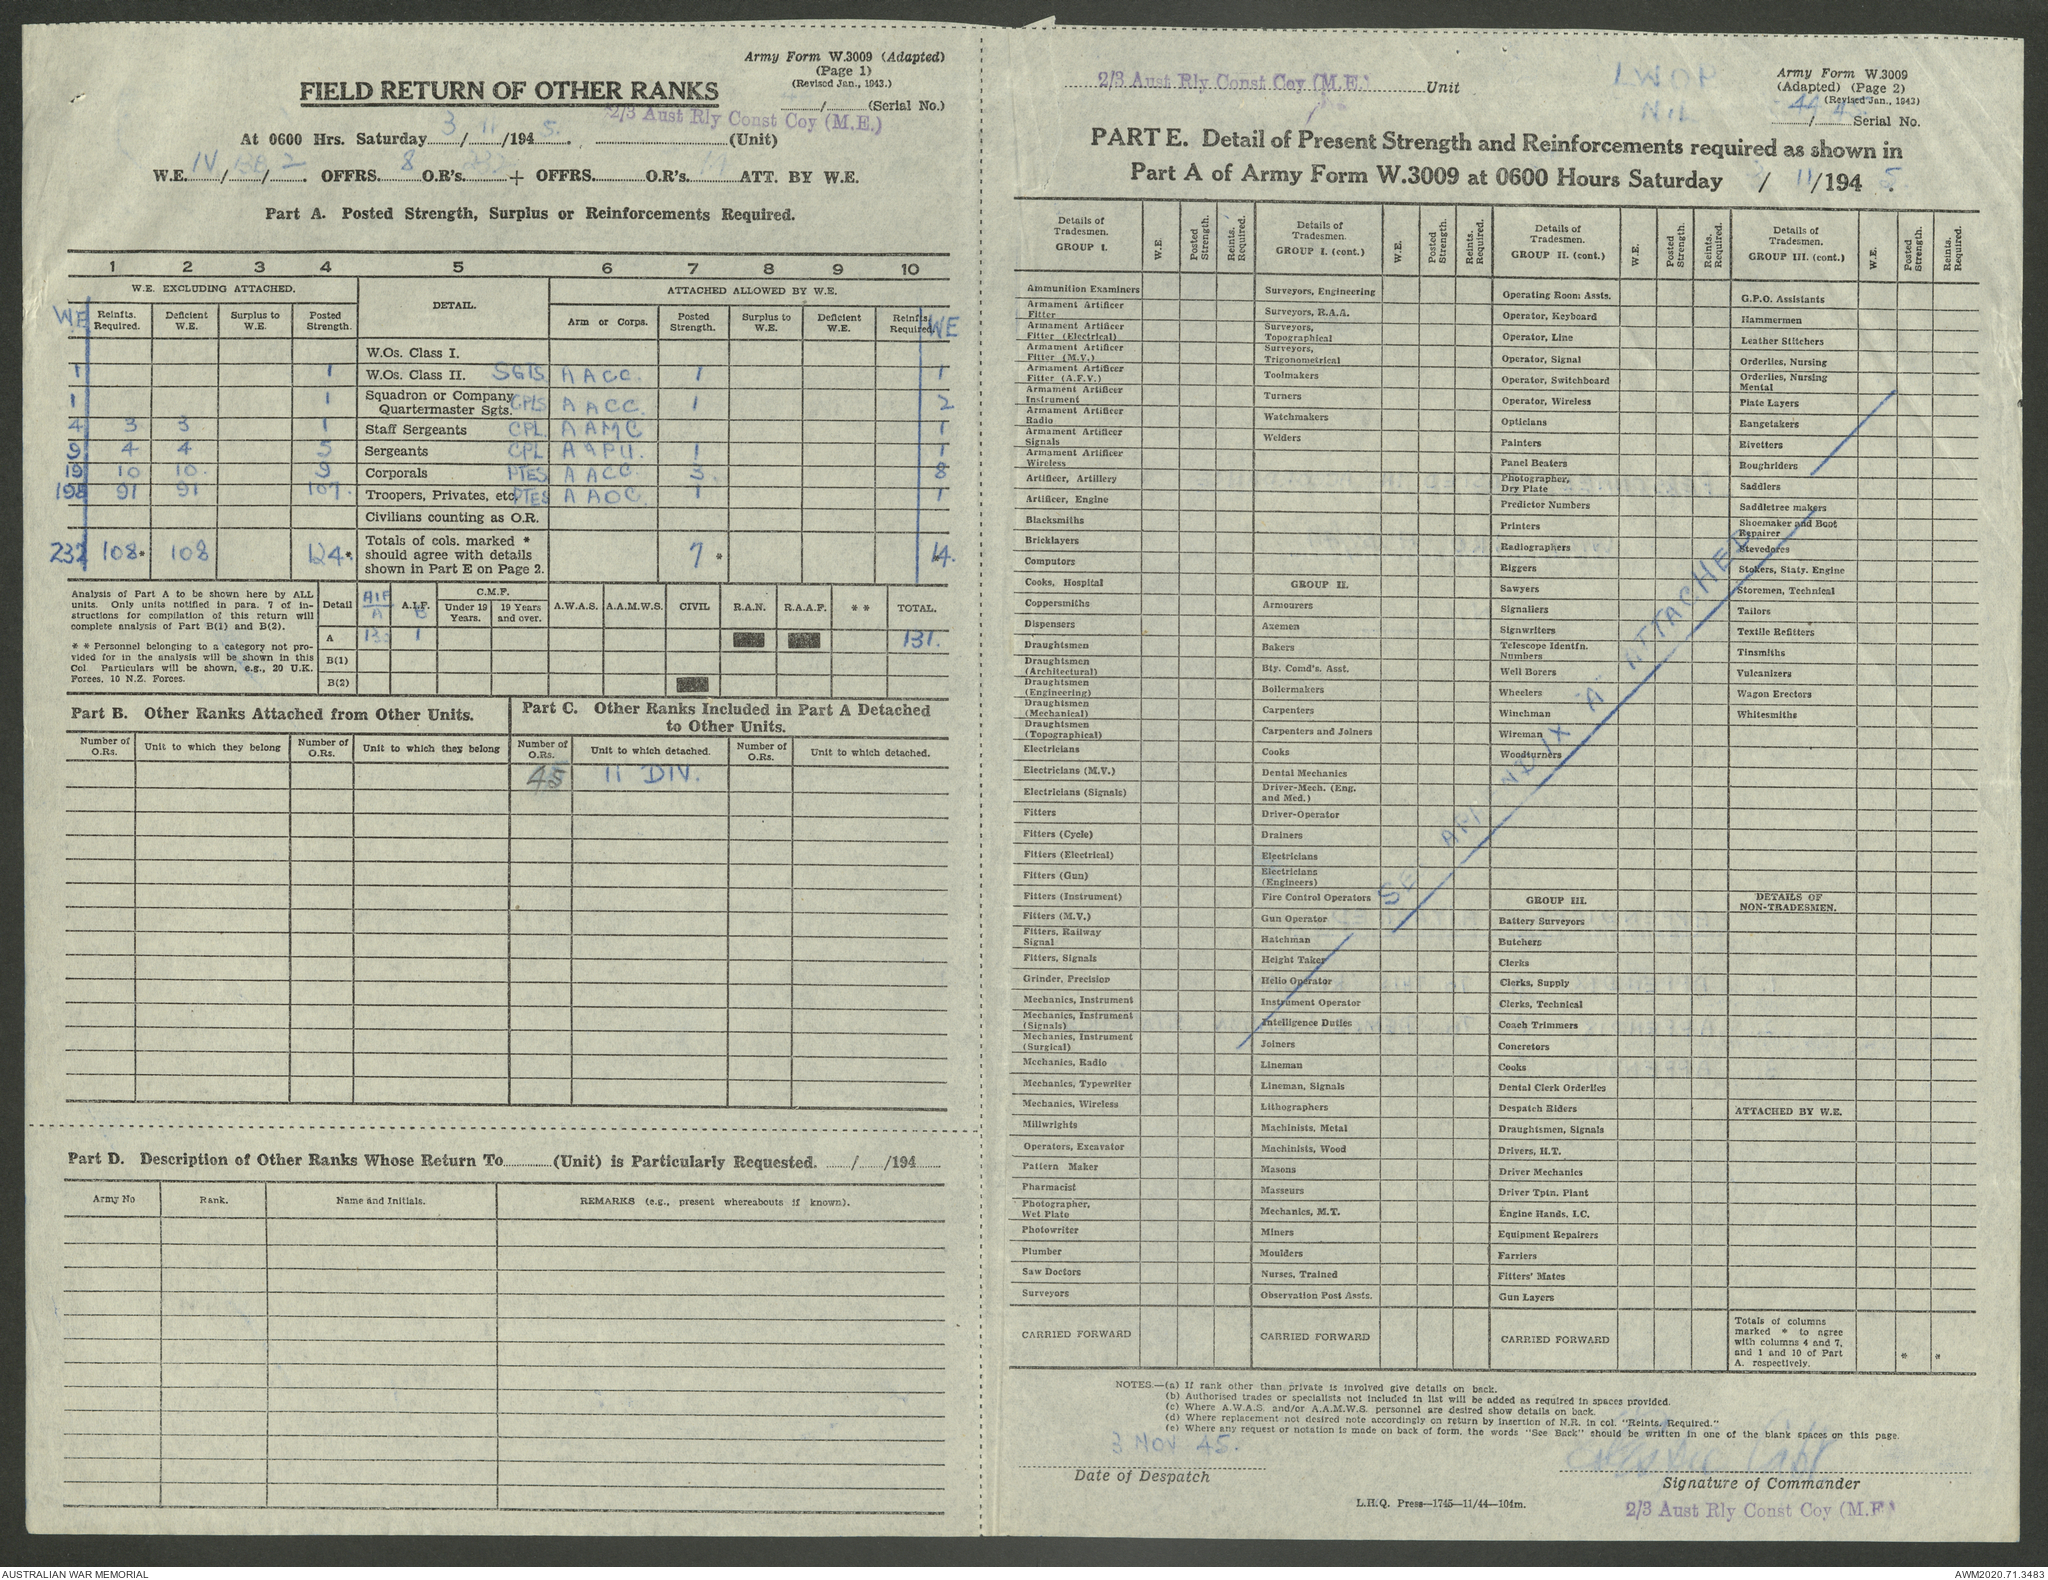 Army Form W.3009 (Adapted)
(Page 1)
(Revised Jan., 1943.)
FIELD RETURN OF OTHER RANKS
....../...... (Serial No.)
2/3 Aust Rly Const Coy (M.E.)
At 0600 Hrs. Saturday 3/11/1945. (Unit)
W.E. IV/ / 2 OFFRS. 8 O.R's. + OFFRS. O.R's. ATT. BY W.E.
Part A. Posted Strength, Surplus or Reinforcements Required.
1 2 3 4 5 6 7 8 9 10
W.E. EXCLUDING ATTACHED. DETAIL. ATTACHED ALLOWED BY W.E.
WE Reinfts. Required. Deficient W.E. Surplus to W.E. Posted Strength. Arm or Corps. Posted Strength. Surplus to W.E. Deficient W.E. Reinfts. Required. WE
W.Os. Class I.
1 1 W.Os. Class II. SGTS AACC. 1 1
1 1 Squadron or Company Quartermaster Sgts. CPLS AACC. 1 2
4 3 3 1 Staff Sergeants CPL AAMC 1
9 4 4 5 Sergeants CPL AAPU. 1 1
19 10 10. 9 Corporals PTES AACC. 3. 8
198 91 91 107. Troopers, Privates, etc. PTES AAOC. 1 1
Civilians counting as O.R.
232 108* 108 124*. Totals of cols. marked * should agree with details shown in Part E on Page 2. 7 * 14.
Analysis of Part A to be shown here by ALL units. Only units notified in para. 7 of instructions for compilation of this return will complete analysis of Part B(1) and B(2).
* * Personnel belonging to a category not provided for in the analysis will be shown in this Col. Particulars will be shown, e.g., 20 U.K. Forces, 10 N.Z. Forces.
Detail AIF A A.I.F. B C.M.F. Under 19 Years. 19 Years and over. A.W.A.S. A.A.M.W.S. CIVIL R.A.N. R.A.A.F. * * TOTAL.
A 130 1 131.
B(1)
B(2)
Part B. Other Ranks Attached from Other Units.
Part C. Other Ranks Included in Part A Detached to Other Units.
Number of O.Rs. Unit to which they belong Number of O.Rs. Unit to which they belong Number of O.Rs. Unit to which detached. Number of O.Rs. Unit to which detached.
45 11 DIV.
Part D. Description of Other Ranks Whose Return To............(Unit) is Particularly Requested. ....../....../194......
Army No Rank. Name and Initials. REMARKS (e.g., present whereabouts if known).
2/3 Aust Rly Const Coy (M.E.) Unit
Army Form W.3009
(Adapted) (Page 2)
(Revised Jan., 1943)
....../...... Serial No.
PART E. Detail of Present Strength and Reinforcements required as shown in
Part A of Army Form W.3009 at 0600 Hours Saturday / 11/1945.
Details of Tradesmen. GROUP I. W.E. Posted Strength. Reints. Required.
Ammunition Examiners
Armament Artificer Fitter
Armament Artificer Fitter (Electrical)
Armament Artificer Fitter (M.V.)
Armament Artificer Fitter (A.F.V.)
Armament Artificer Instrument
Armament Artificer Radio
Armament Artificer Signals
Armament Artificer Wireless
Artificer, Artillery
Artificer, Engine
Blacksmiths
Bricklayers
Computors
Cooks, Hospital
Coppersmiths
Dispensers
Draughtsmen
Draughtsmen (Architectural)
Draughtsmen (Engineering)
Draughtsmen (Mechanical)
Draughtsmen (Topographical)
Electricians
Electricians (M.V.)
Electricians (Signals)
Fitters
Fitters (Cycle)
Fitters (Electrical)
Fitters (Gun)
Fitters (Instrument)
Fitters (M.V.)
Fitters, Railway Signal
Fitters, Signals
Grinder, Precision
Mechanics, Instrument
Mechanics, Instrument (Signals)
Mechanics, Instrument (Surgical)
Mechanics, Radio
Mechanics, Typewriter
Mechanics, Wireless
Millwrights
Operators, Excavator
Pattern Maker
Pharmacist
Photographer, Wet Plate
Photowriter
Plumber
Saw Doctors
Surveyors
CARRIED FORWARD
Details of Tradesmen. GROUP I. (cont.) W.E. Posted Strength. Reints. Required.
Surveyors, Engineering
Surveyors, R.A.A.
Surveyors, Topographical
Surveyors, Trigonometrical
Toolmakers
Turners
Watchmakers
Welders
GROUP II.
Armourers
Axemen
Bakers
Bty. Comd's. Asst.
Boilermakers
Carpenters
Carpenters and Joiners
Cooks
Dental Mechanics
Driver-Mech. (Eng. and Med.)
Driver-Operator
Drainers
Electricians
Electricians (Engineers)
Fire Control Operators
Gun Operator
Hatchman
Height Taker
Helio Operator
Instrument Operator
Intelligence Duties
Joiners
Lineman
Lineman, Signals
Lithographers
Machinists, Metal
Machinists, Wood
Masons
Masseurs
Mechanics, M.T.
Miners
Moulders
Nurses, Trained
Observation Post Assts.
CARRIED FORWARD
Details of Tradesmen. GROUP II. (cont.) W.E. Posted Strength. Reints. Required.
Operating Room Assts.
Operator, Keyboard
Operator, Line
Operator, Signal
Operator, Switchboard
Operator, Wireless
Opticians
Painters
Panel Beaters
Photographer, Dry Plate
Predictor Numbers
Printers
Radiographers
Riggers
Sawyers
Signallers
Signwriters
Telescope Identfn. Numbers
Well Borers
Wheelers
Winchman
Wireman
Woodturners
GROUP III.
Battery Surveyors
Butchers
Clerks
Clerks, Supply
Clerks, Technical
Coach Trimmers
Concretors
Cooks
Dental Clerk Orderlies
Despatch Riders
Draughtsmen, Signals
Drivers, H.T.
Driver Mechanics
Driver Tptn. Plant
Engine Hands, I.C.
Equipment Repairers
Farriers
Fitters' Mates
Gun Layers
CARRIED FORWARD
Details of Tradesmen. GROUP III. (cont.) W.E. Posted Strength. Reints. Required.
G.P.O. Assistants
Hammermen
Leather Stitchers
Orderlies, Nursing
Orderlies, Nursing Mental
Plate Layers
Rangetakers
Rivetters
Roughriders
Saddlers
Saddletree makers
Shoemaker and Boot Repairer
Stevedores
Stokers, Staty. Engine
Storemen, Technical
Tailors
Textile Refitters
Tinsmiths
Vulcanizers
Wagon Erectors
Whitesmiths
DETAILS OF NON-TRADESMEN.
ATTACHED BY W.E.
Totals of columns marked * to agree with columns 4 and 7, and 1 and 10 of Part A. respectively. * *
SEE APPENDIX "A" ATTACHED
NOTES.—(a) If rank other than private is involved give details on back.
(b) Authorised trades or specialists not included in list will be added as required in spaces provided.
(c) Where A.W.A.S. and/or A.A.M.W.S. personnel are desired show details on back.
(d) Where replacement not desired note accordingly on return by insertion of N.R. in col. "Reints. Required."
(e) Where any request or notation is made on back of form, the words "See Back" should be written in one of the blank spaces on this page.
3 NOV 45.
Date of Despatch
Capt
Signature of Commander
L.H.Q. Press—1745—11/44—104m.
2/3 Aust Rly Const Coy (M.E.)
AUSTRALIAN WAR MEMORIAL
AWM2020.71.3483